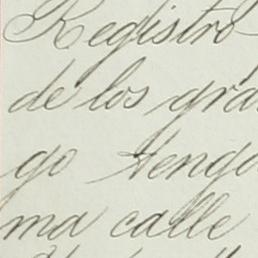 Registro
de los gra
go tengo
ma calle